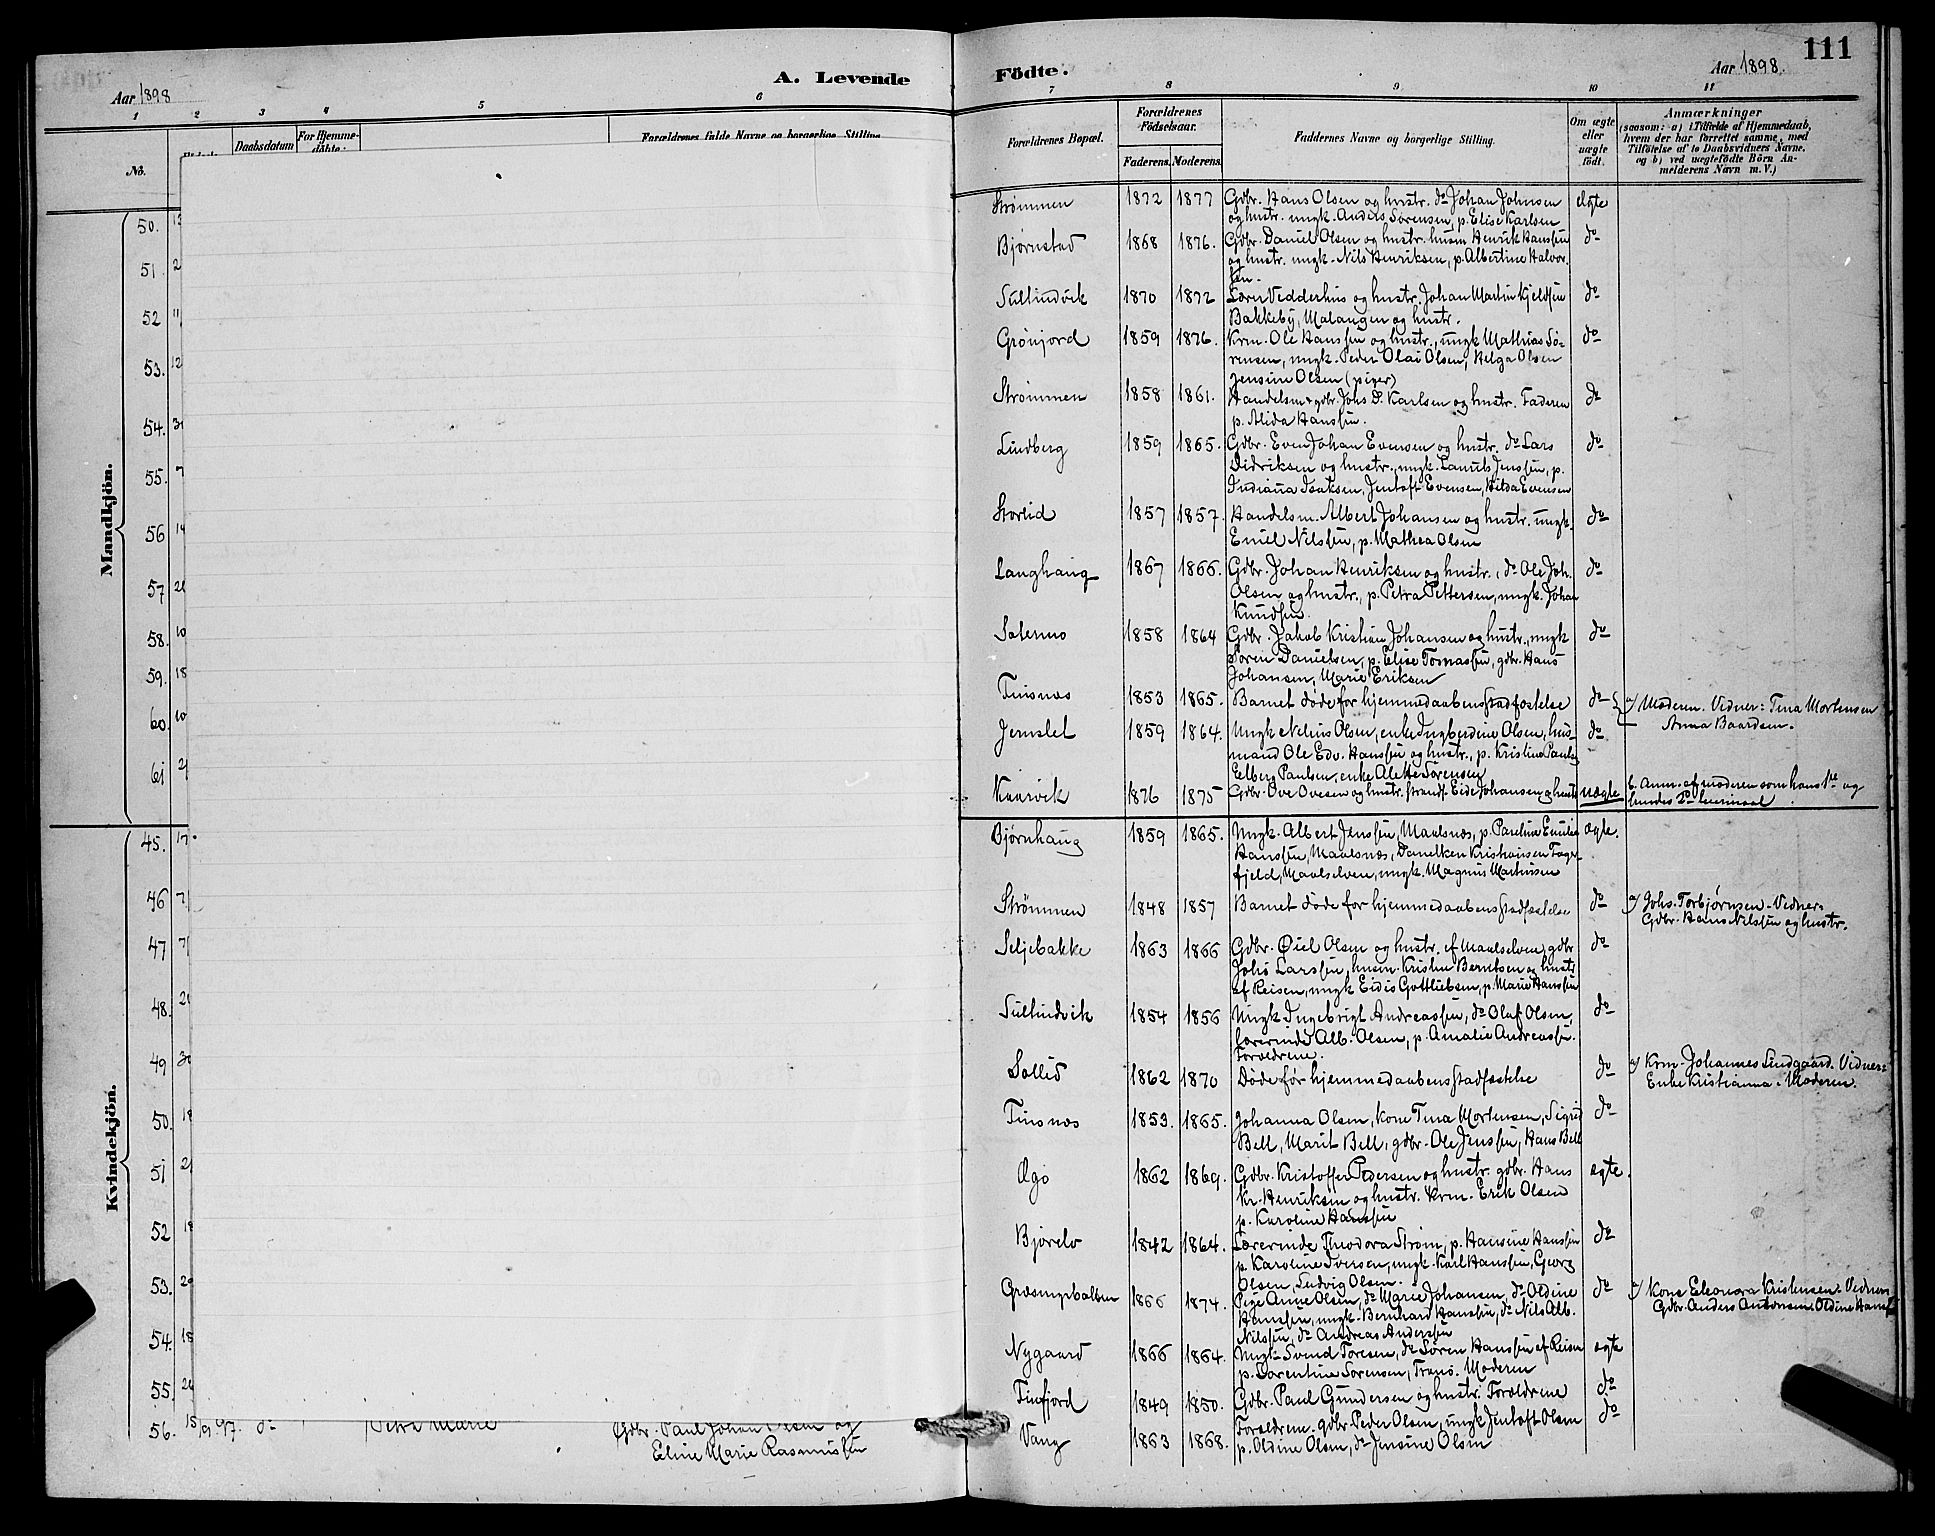 111
A. Levende Födte.
Aar 1898
Aar 1898.
1 2 3 4 5 6 7 8 9 10 11
No.
Daabsdatum
For Hjemme-
döbte:
Forældrenes fulde Navne og borgerlige Stilling
Forældrenes Bopæl.
Forældrenes
Födselsaar.
Faderens. Moderens.
Faddernes Navne og borgerlige Stilling.
Om ægte
eller
uægte
födt.
Anmærkninger
(saasom: a) i Tilfælde af Hjemmedaab,
hvem der har forrettet samme, med
Tilföielse af to Daabsvidners Navne.
og b) ved uægtefödte Börn An-
melderens Navn m. V.)
Mandkjön.
50.
Strømmen 1872 1877 Gdbr. Hans Olsen og hustr. do Johan Johnsen ægte
og hustr. ungk. Anders Sørensen, p. Elise Karlsen
51.
Bjørnstad 1868 1876. Gdbr. Daniel Olsen og hustr. husm Henrik Hanssen do
og hustr. ungk. Nils Henriksen, p. Albertine Halvor
sen.
52
Sultindvik 1870 1872 Søren Vedderhus og hustr. Johan Martin Kjeldsen do
Bakkeby, Malangen og hustr.
53.
Grønjord 1859 1876. Krm. Ole Hanssen og hustr., ungk Mathias Sø-
rensen, ungk. Peder Olai Olsen, Helga Olsen do
Jensine Olsen (piger)
54.
Strømmen 1858 1861. Handelsm & gdbr. Johs D. Karlsen og hustr. Faderen do
p. Alida Hanssen.
55.
Lindberg 1859 1865. Gdbr. Even Johan Evensen og hustr. do Lars do
Didriksen og hustr., ungk. Lauuts Jenssen, p.
Indiana Isaksen, Jentoft Evensen, Hilda Evensen
56
Storlid 1857 1857. Handelsm. Albert Johansen og hustr. ungk. do
Emil Nilssen, p. Mathea Olsen
57.
Langhaug 1867 1866. Gdbr. Johan Henriksen og hustr., do Ole Joh. do
Olsen og hustr., p. Petra Pettersen, ungk. Johan
Knudsen.
58.
Solernes 1858 1864 Gdbr. Jakob Kristian Johansen og hustr., ungk do
Søren Danielsen, p. Elise Tomassen, gdbr. Hans
Johansen, Marie Eriksen
59.
Finsnes 1853 1865. Barnet døde før hjemmedaabens stadfæstelse do a) Moderen. Vidner: Tina Mortensen
Anna Baardsen.
60.
Jernslet 1859 1864. Ungk Nelius Olsen, enke Ingberdine Olsen, hus- do
mand Ole Edv. Hanssen og hustr., p. Kristine Pauls.
Edberg Paulsen, enke Alette Sørensen
61
Kaarvik 1876 1875 Gdbr. Ove Ovesen og hustr. strands. Eide Johansen og hustr uægte b. Anm. af moderen som hans 1ste og
hendes 2det leiermaal.
Kvindekjön.
45.
Bjørnhaug 1859 1865. Ungk. Albert Jenssen, Maalsnes, p. Pauline Emilie ægte.
Hanssen, Maalsnes, Danelken Kristiansen Fager-
fjeld, Maalselven, ungk. Magnus Martinssen
46
Strømmen 1848 1857 Barnet døde før hjemmedaabens stadfæstelse do a) Johs. Torbjørnsen. Vidner:
Gdbr. Hans Nilssen og hustr.
47
Seljebakke 1863 1866 Gdbr. Øiel Olsen og hustr. af Maalselven, gdbr do
Johs Larssen, husm. Kristen Berntsen og hustr
af Reisen, ungk Eidis Gottliebsen, p. Marie Hanssen
48.
Sultindvik 1854 1856 Ungk Ingebrigt Andreassen, do Olaf Olsen, do
lærerinde Alb. Olsen, p. Amalie Andreassen.
Forældrene.
49
Sollid 1862 1870 Døde før hjemmedaabens stadfæstelse do a) Krm. Johannes Lindgaard. Vidner:
Enke Kristianna. Moderen.
50.
Finsnes 1853. 1865. Johanna Olsen, kone Tina Mortensen, Sigrid do
Bell, Marit Bell, gdbr. Ole Jenssen, Hans Bell
51
Øgo 1862 1869. Gdbr. Kristoffer Pedersen og hustr. gdbr. Hans ægte.
Kr. Henriksen og hustr. krm. Erik Olsen
p. Karoline Hanssen
52
Bjørelv 1842 1864. Lærerinde Theodora Strøm, p. Hansine Hanssen do
p. Karoline Iversen, ungk. Karl Hanssen, Georg
Olsen, Ludvig Olsen.
53.
Græsmyrbakken 1866 1874. Pige Anne Olsen, do Marie Johansen, do Oldine do a) Kone Eleonora Kristensen. Vidner:
Hanssen, ungk. Bernhard Hanssen, do Nils Alb. Gdbr. Anders Antonsen. Oldine Hanss
Nilssen, do Andreas Anderssen
54.
Nygaard 1866 1864. Ungk. Svend Toresen, do Søren Hanssen af Reisen ægte
p. Dorentine Sørensen, Tranø. Moderen
55.
Finfjord 1849 1850. Gdbr. Paul Gundersen og hustr. Forældrene do
56. 15/9.97. do Petra Marie Gdbr. Paul Johan Olsen og
Eline Marie Rasmussen
Vang 1863 1868. Forældrene. gdbr. Peder Olsen, ungk Jentoft Olsen do
p. Oldine Olsen, do Jensine Olsen